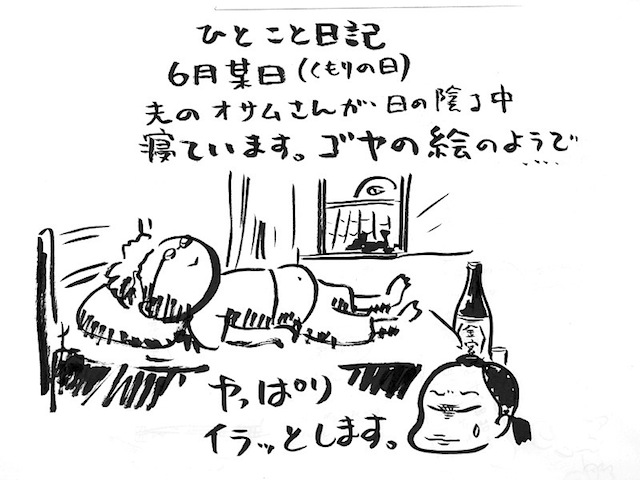 ひとこと日記
6月某日(くもりの日)
夫のオサムさんが、日の陰る中
寝ています。ゴヤの絵のようで
‥‥
やっぱり
イラッとします。
金宮